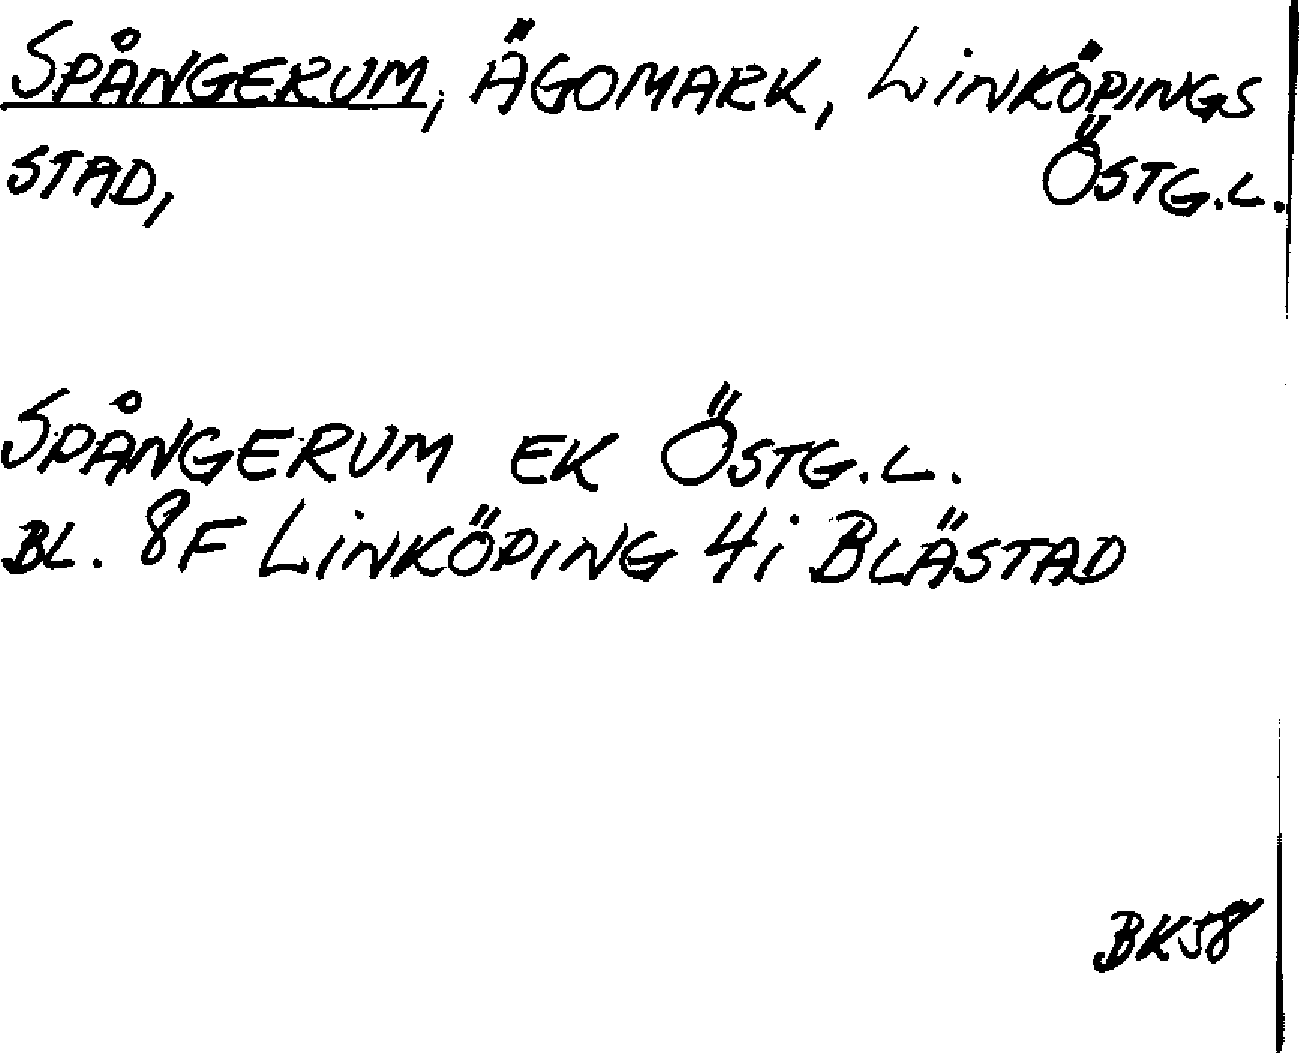 SPÅNGERUM, ÄGOMARK, LINKÖPINGS
STAD, ÖSTG.L.
SPÅNGERUM EK ÖSTG.L.
BL. 8F LINKÖPING 4i BLÄSTAD
BK58